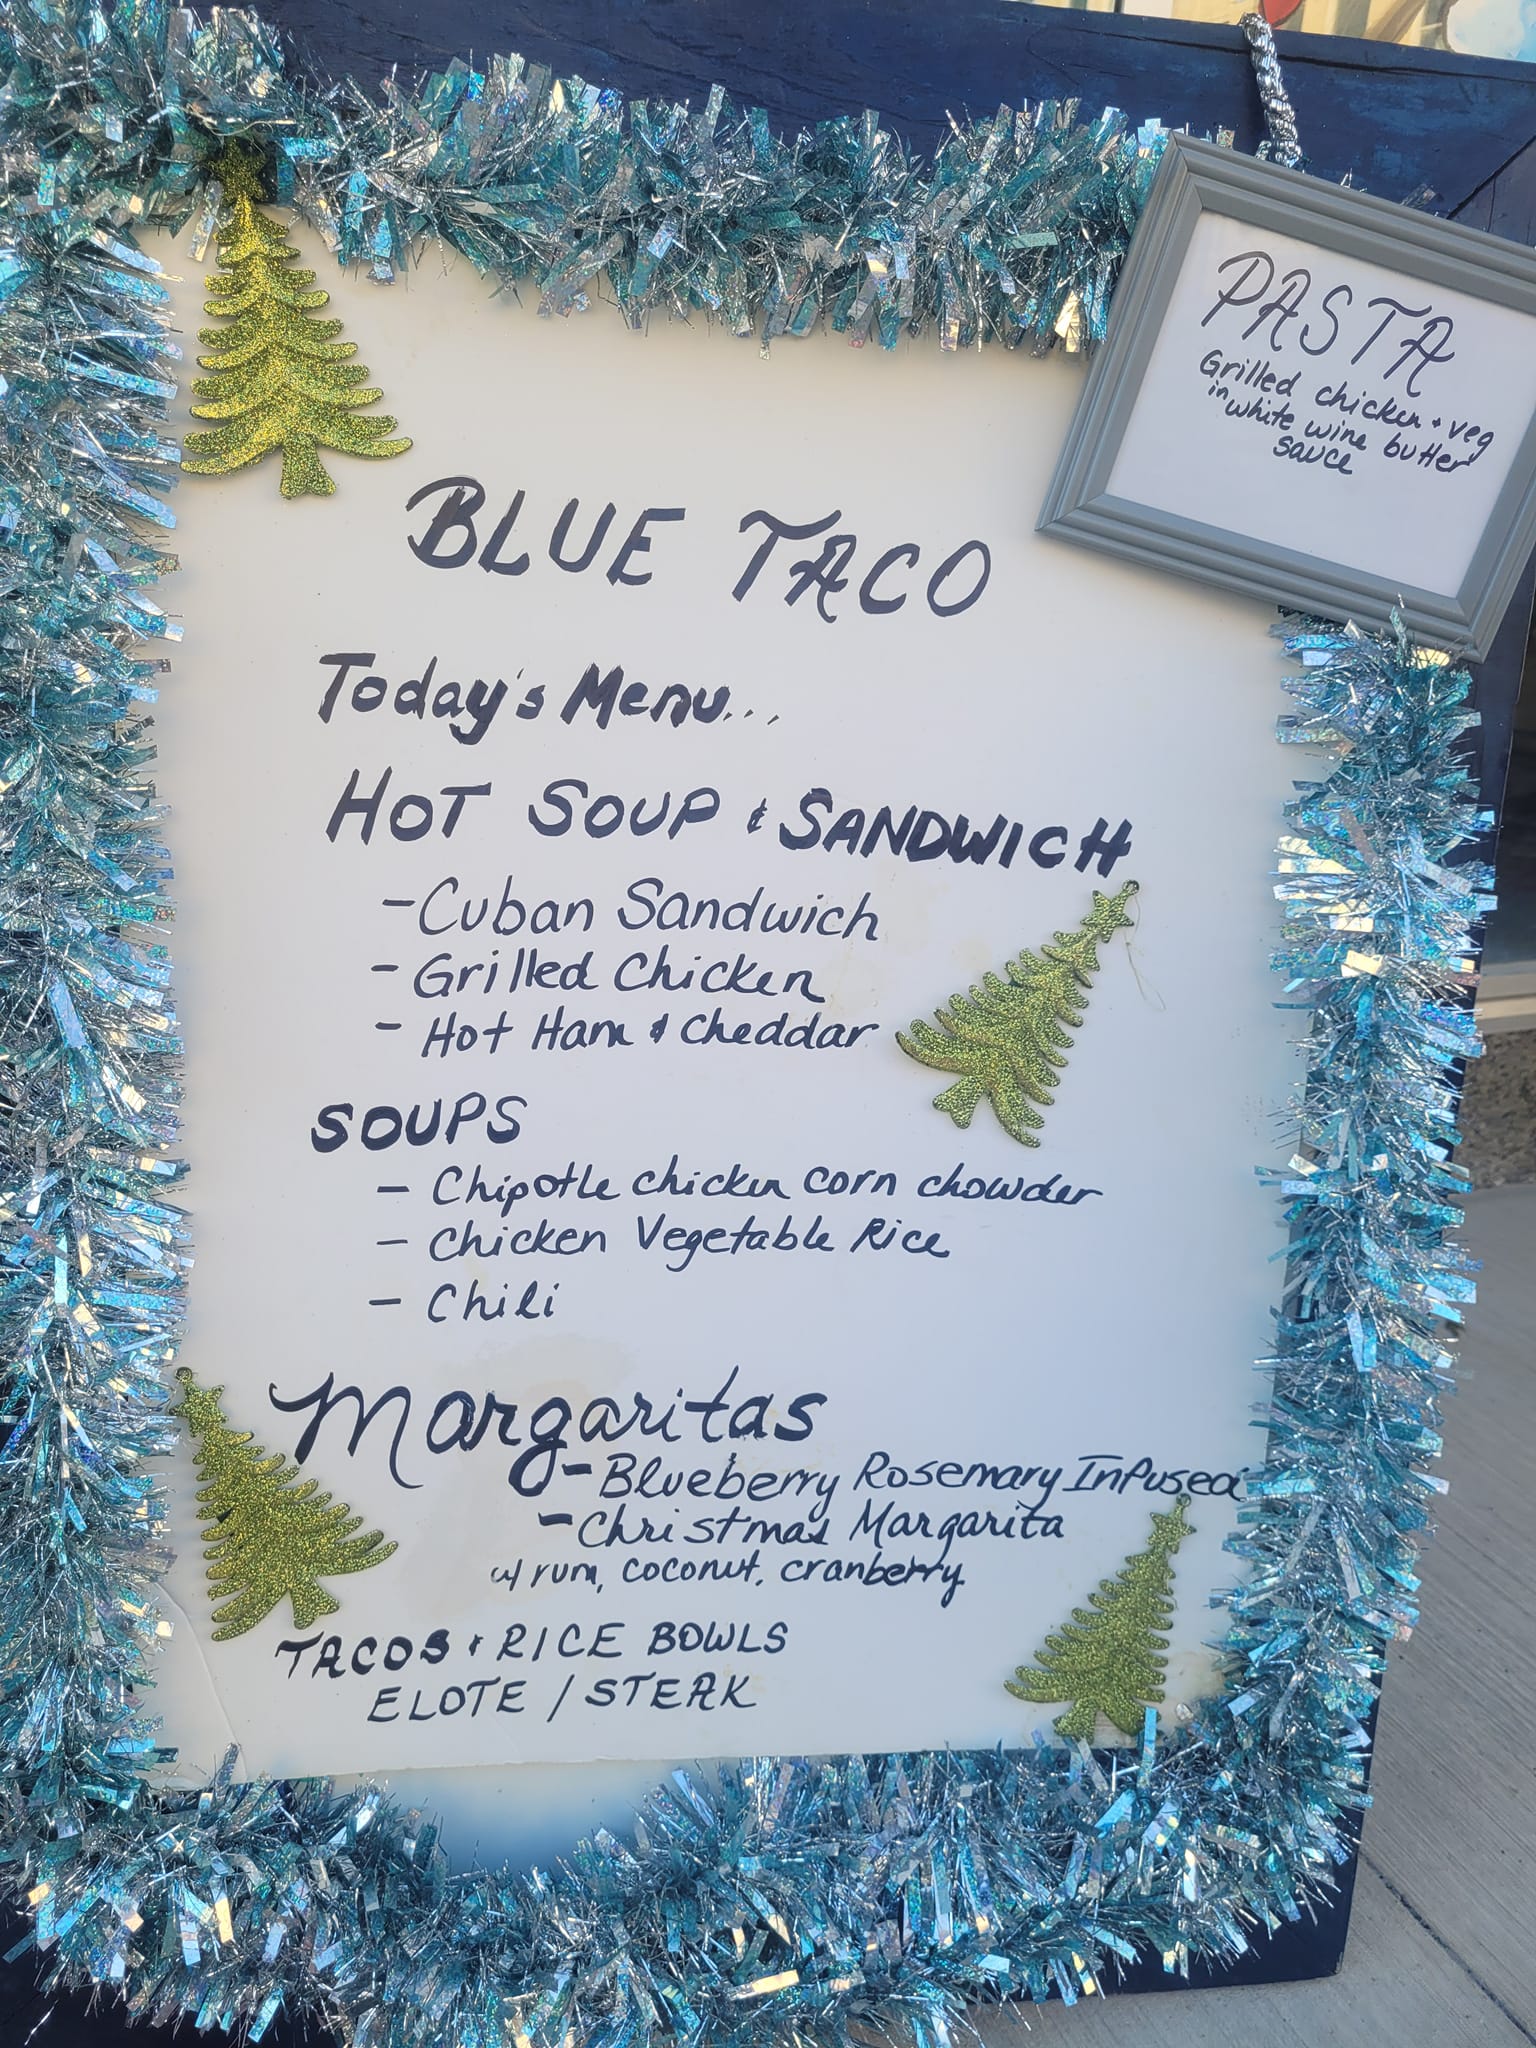 PASTA
Grilled chicken + veg
in white wine butter
sauce
BLUE TACO
Today's Menu...
HOT SOUP & SANDWICH
- Cuban Sandwich
- Grilled Chicken
- Hot Ham & Cheddar
SOUPS
- Chipotle chicken corn chowder
- Chicken Vegetable Rice
- Chili
Margaritas
- Blueberry Rosemary Infused
- Christmas Margarita
w/ rum, coconut, cranberry
TACOS & RICE BOWLS
ELOTE / STEAK